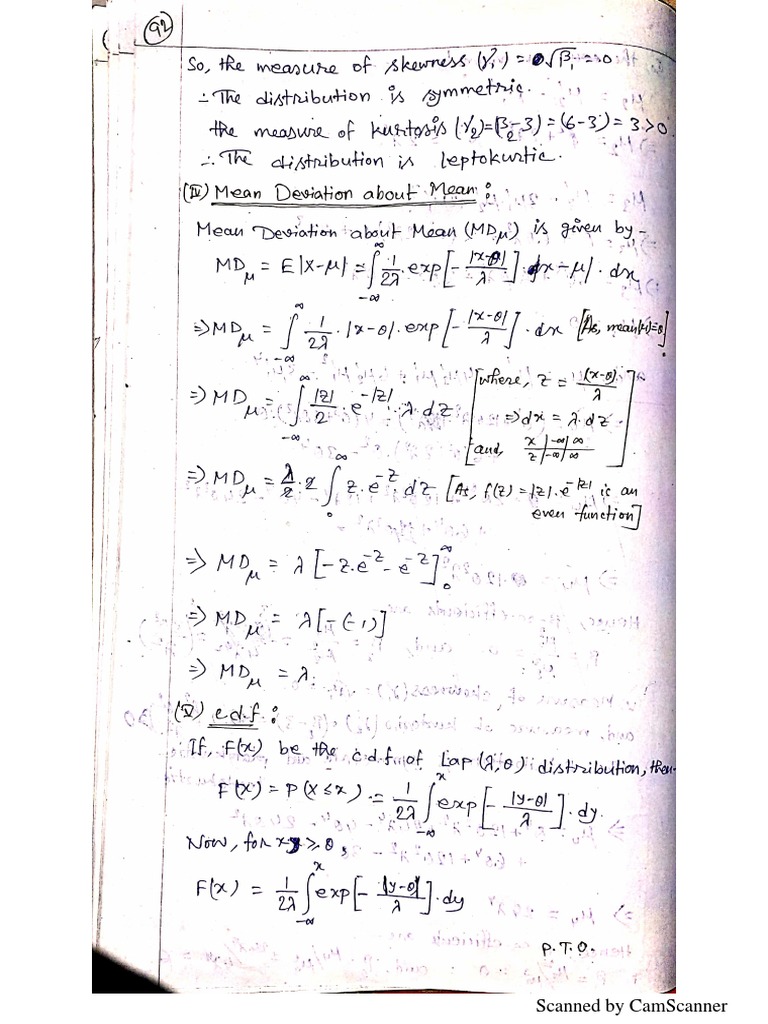 92
So, the measure of skewness (γ₁) = √β₁ = 0
∴ The distribution is symmetric.
the measure of kurtosis (γ₂) = (β₂-3) = (6-3) = 3 > 0.
∴ The distribution is leptokurtic.
(IV) Mean Deviation about Mean:
Mean Deviation about Mean (MDμ) is given by -
MDμ = E|X-μ| = ∫_{-∞}^{∞} 1/2λ . exp[- |x-θ|/λ] |x-μ| . dx
⇒ MDμ = ∫_{-∞}^{∞} 1/2λ . |x-θ| . exp[- |x-θ|/λ] . dx [As, mean(μ)=θ]
⇒ MDμ = ∫_{-∞}^{∞} |z|/2 e^{-|z|} . λ . dz [where, z = (x-θ)/λ
⇒ dx = λ.dz
and, x | -∞ | ∞
z | -∞ | ∞]
⇒ MDμ = λ/2 . 2 ∫_0^∞ z.e^{-z} dz [As, f(z) = |z|.e^{-|z|} is an
even function]
⇒ MDμ = λ [-z.e^{-z} - e^{-z}]_0^∞
⇒ MDμ = λ[-(-1)]
⇒ MDμ = λ.
(V) c.d.f:
If, F(x) be the c.d.f of Lap(λ,θ) distribution, then-
F(x) = P(X≤x) = 1/2λ ∫_{-∞}^x exp[- |y-θ|/λ] . dy.
Now, for x ≥ θ,
F(x) = 1/2λ ∫_{-∞}^x exp[- |y-θ|/λ] . dy
P.T.O.
Scanned by CamScanner